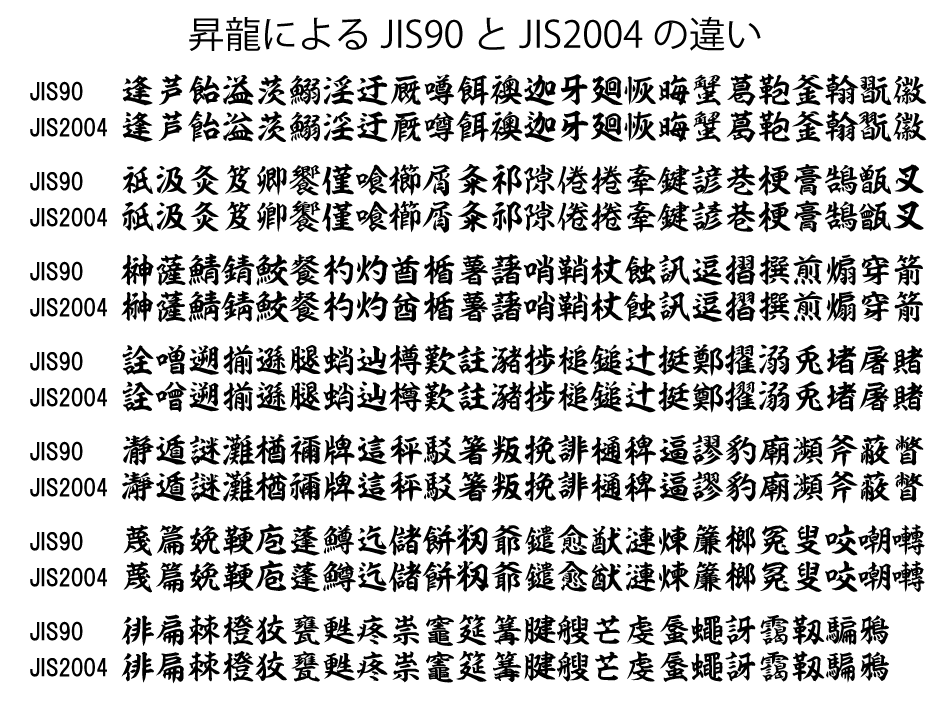 昇龍による JIS90 と JIS2004 の違い
JIS90 逢芦飴溢茨鰯淫迂厩噂餌襖迦牙廻恢晦蟹葛鞄釜翰翫徽
JIS2004 逢芦飴溢茨鰯淫迂厩噂餌襖迦牙廻恢晦蟹葛鞄釜翰翫徽
JIS90 祇汲灸笈卿饗僅喰櫛屑粂祁隙倦捲牽鍵諺巷梗膏鵠甑叉
JIS2004 祇汲灸笈卿饗僅喰櫛屑粂祁隙倦捲牽鍵諺巷梗膏鵠甑叉
JIS90 榊薩鯖錆鮫餐杓灼酋楯薯藷哨鞘杖蝕訊逗摺撰煎煽穿箭
JIS2004 榊薩鯖錆鮫餐杓灼酋楯薯藷哨鞘杖蝕訊逗摺撰煎煽穿箭
JIS90 詮噌遡揃遜腿蛸辿樽歎註瀦捗槌鎚辻挺鄭擢溺兎堵屠賭
JIS2004 詮噌遡揃遜腿蛸辿樽歎註瀦捗槌鎚辻挺鄭擢溺兎堵屠賭
JIS90 瀞遁謎灘楢禰牌這秤駁箸叛挽誹樋稗逼謬豹廟瀕斧蔽瞥
JIS2004 瀞遁謎灘楢禰牌這秤駁箸叛挽誹樋稗逼謬豹廟瀕斧蔽瞥
JIS90 蔑篇娩鞭庖蓬鱒迄儲餅籾爺鑓愈猷漣煉簾榔冤叟咬嘲囀
JIS2004 蔑篇娩鞭庖蓬鱒迄儲餅籾爺鑓愈猷漣煉簾榔冤叟咬嘲囀
JIS90 徘扁棘橙狡甕甦疼祟竈筵篝腱艘芒虔蜃蠅訝靄靱騙鴉
JIS2004 徘扁棘橙狡甕甦疼祟竈筵篝腱艘芒虔蜃蠅訝靄靱騙鴉